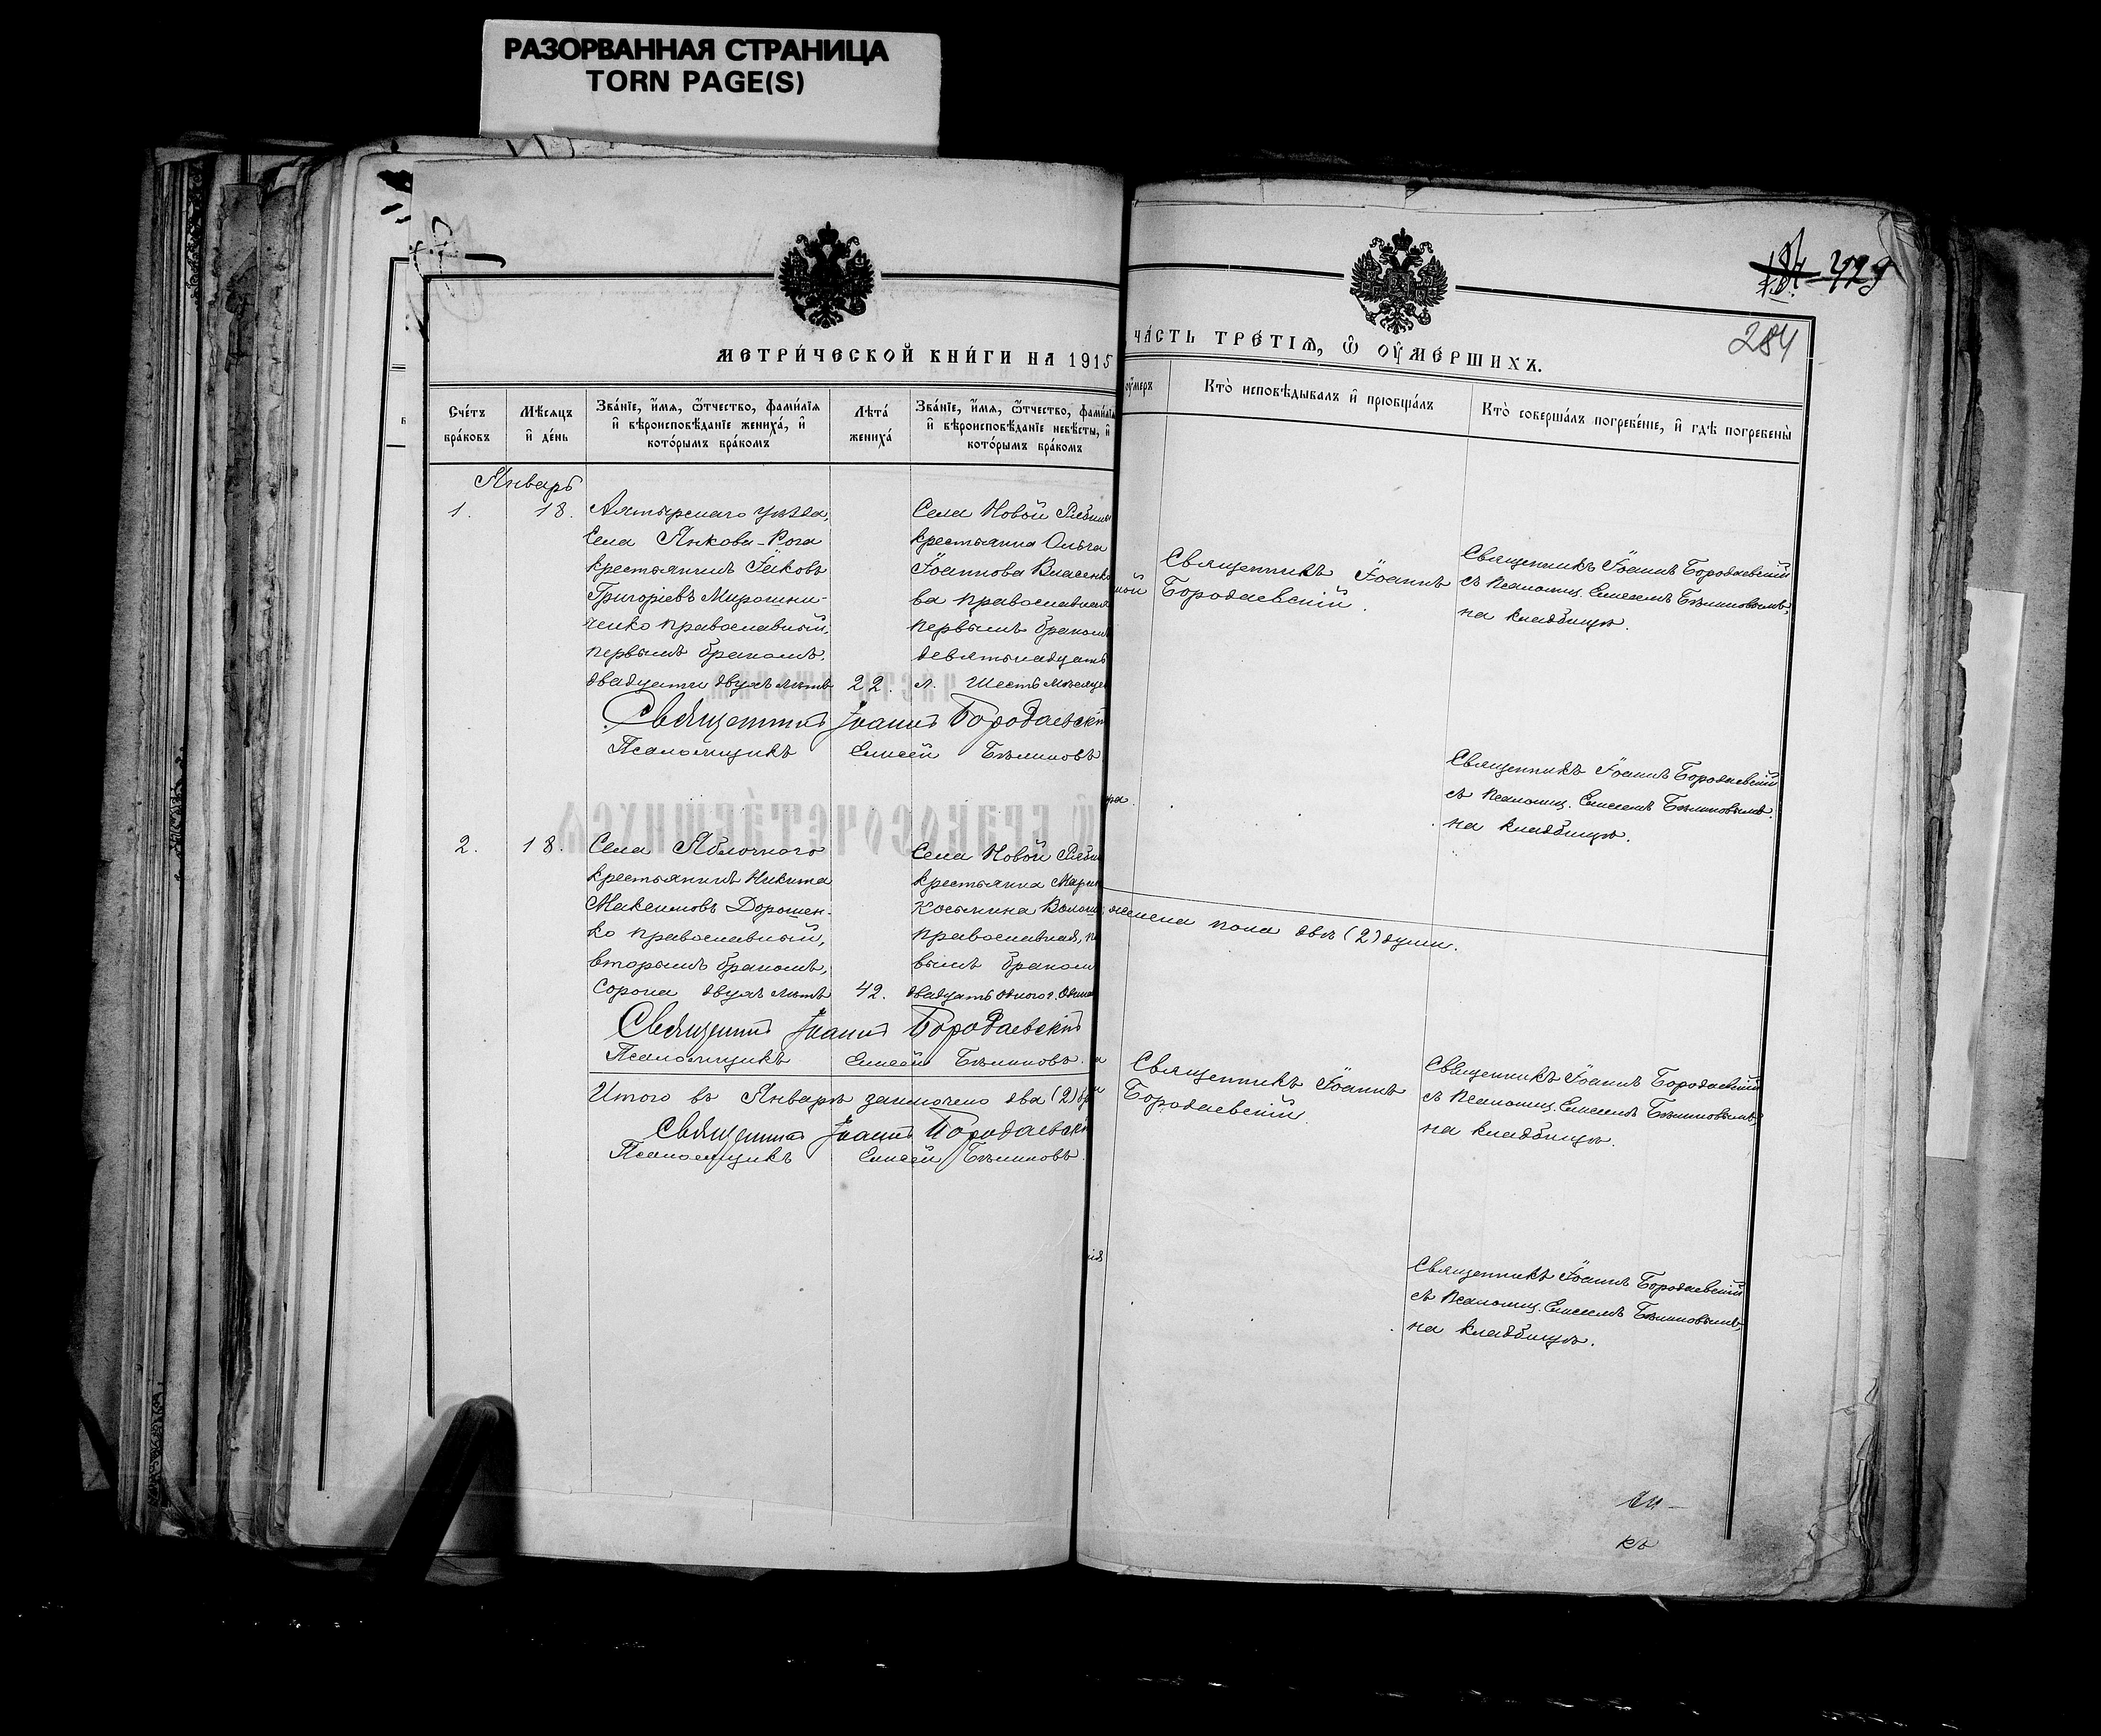 РАЗОРВАННАЯ СТРАНИЦА
TORN PAGE(S)
МЕТРИ́ЧЕСКОЙ КНИ́ГИ НА 1915
Сче́тъ бра́ковъ
Мѣсяцъ и҆ де́нь
Зва́нїе, и҆́мя, ѻ҆́тчество, фами́лїя и҆ вѣроисповѣ́данїе жениха́, и҆ кото́рымъ бра́комъ
Лѣта́ жениха́
Зва́нїе, и҆́мя, ѻ҆́тчество, фами́лїя и҆ вѣроисповѣ́данїе невѣ́сты, и҆ кото́рымъ бра́комъ
Январь
1. 18.
Ахтырскаго уѣзда,
Села Янкова-Рога
крестьянинъ Іаковъ
Григоріевъ Мирошни-
ченко православный,
первымъ бракомъ.
двадцати двухъ лѣтъ
22.
Села Новой
крестьянка Ольга
Іоаннова Власенко
ва православная
первымъ бракомъ
девятьнадцать
л. Шесть мѣсяце
Священникъ Іоаннъ Бородаевскій
Псаломщикъ Елисей Бѣликовъ
2. 18.
Села Яблочного
крестьянинъ Никита
Максимовъ Дорошен-
ко православный,
вторымъ бракомъ,
сорока двухъ лѣтъ
42.
Села Новой
крестьянка Мари
Косьмина
православная, пе
вымъ бракомъ
двадцать одного г.
Священникъ Іоаннъ Бородаевскій
Псаломщикъ Елисей Бѣликовъ.
Итого въ Январѣ заключено два (2) бра
Священникъ Іоаннъ Бородаевскі
Псаломщикъ Елисей Бѣликовъ.
429
284
ЧА́СТЬ ТРЕ́ТІѦ, Ѽ ОУ҆МЕ́РШИХЪ.
оу҆́меръ
Кто̀ исповѣ́дывалъ и҆ прїобща́лъ
Кто̀ соверша́лъ погребе́нїе, и҆ гдѣ̀ погребены̀
ной
Священникъ Іоаннъ
Бородаевскій.
Священникъ Іоаннъ Бородаевскій
съ Псаломщ. Елисеемъ Бѣликовымъ,
на кладбищѣ.
ра.
Священникъ Іоаннъ Бородаевскій
съ Псаломщ. Елисеемъ Бѣликовымъ.
на кладбищѣ.
женска пола двѣ (2) души.
Священникъ Іоаннъ
Бородаевскій.
Священникъ Іоаннъ Бородаевскій
съ Псаломщ. Елисеемъ Бѣликовымъ,
на кладбищѣ.
ія
Священникъ Іоаннъ Бородаевскій
съ Псаломщ. Елисеемъ Бѣликовымъ,
на кладбищѣ.